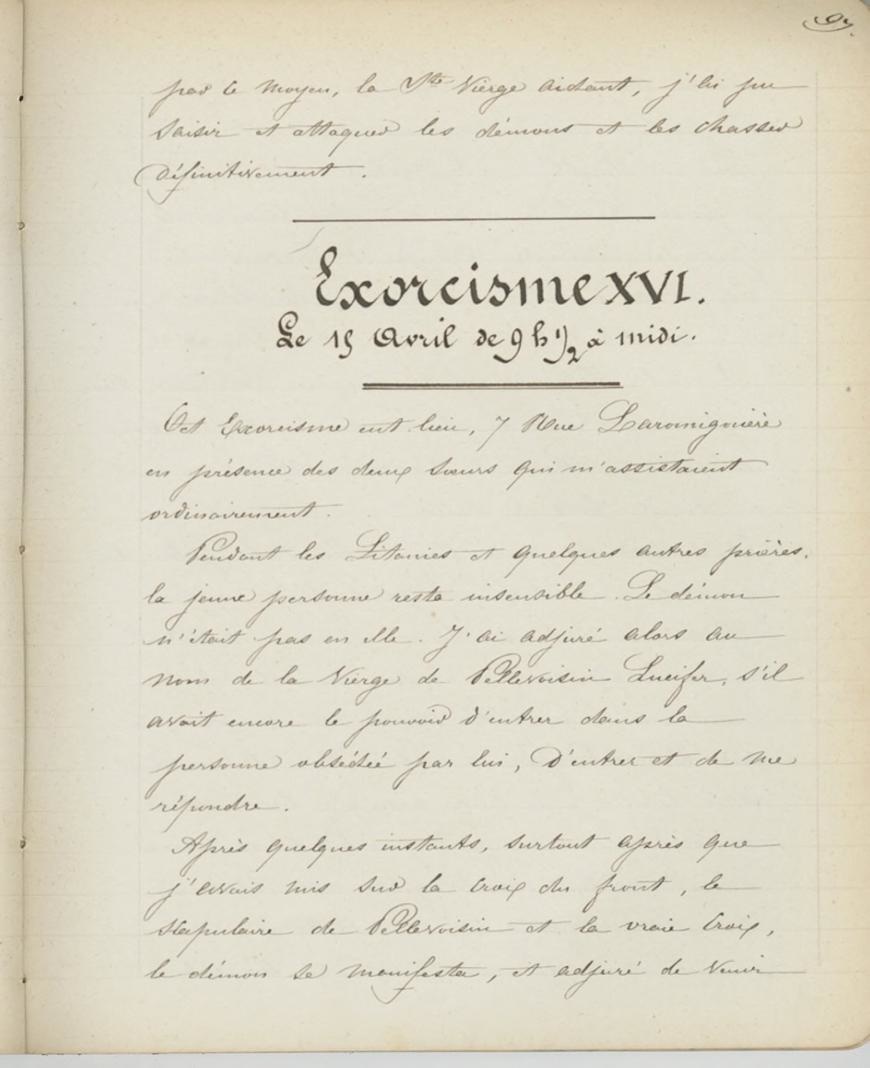 par ce moyen, la Ste Vierge aidant, j'ai pu
saisir et attaquer les démons et les chasser
définitivement.
Exorcisme XVI.
Le 15 Avril de 9 h 1/2 à midi.
Cet Exorcisme eut lieu, 7 Rue Laromiguière
en présence des deux sœurs qui m'assistaient
ordinairement.
Pendant les Litanies et quelques autres prières,
la jeune personne resta insensible. Le démon
n'était pas en elle. J'ai adjuré alors au
nom de la Vierge de Pellevoisin Lucifer, s'il
avait encore le pouvoir d'entrer dans la
personne obsédée par lui, d'entrer et de me
répondre.
Après quelques instants, surtout après que
j'avais mis sur la croix du front, le
scapulaire de Pellevoisin et la vraie Croix,
le démon se manifesta, et adjuré de venir